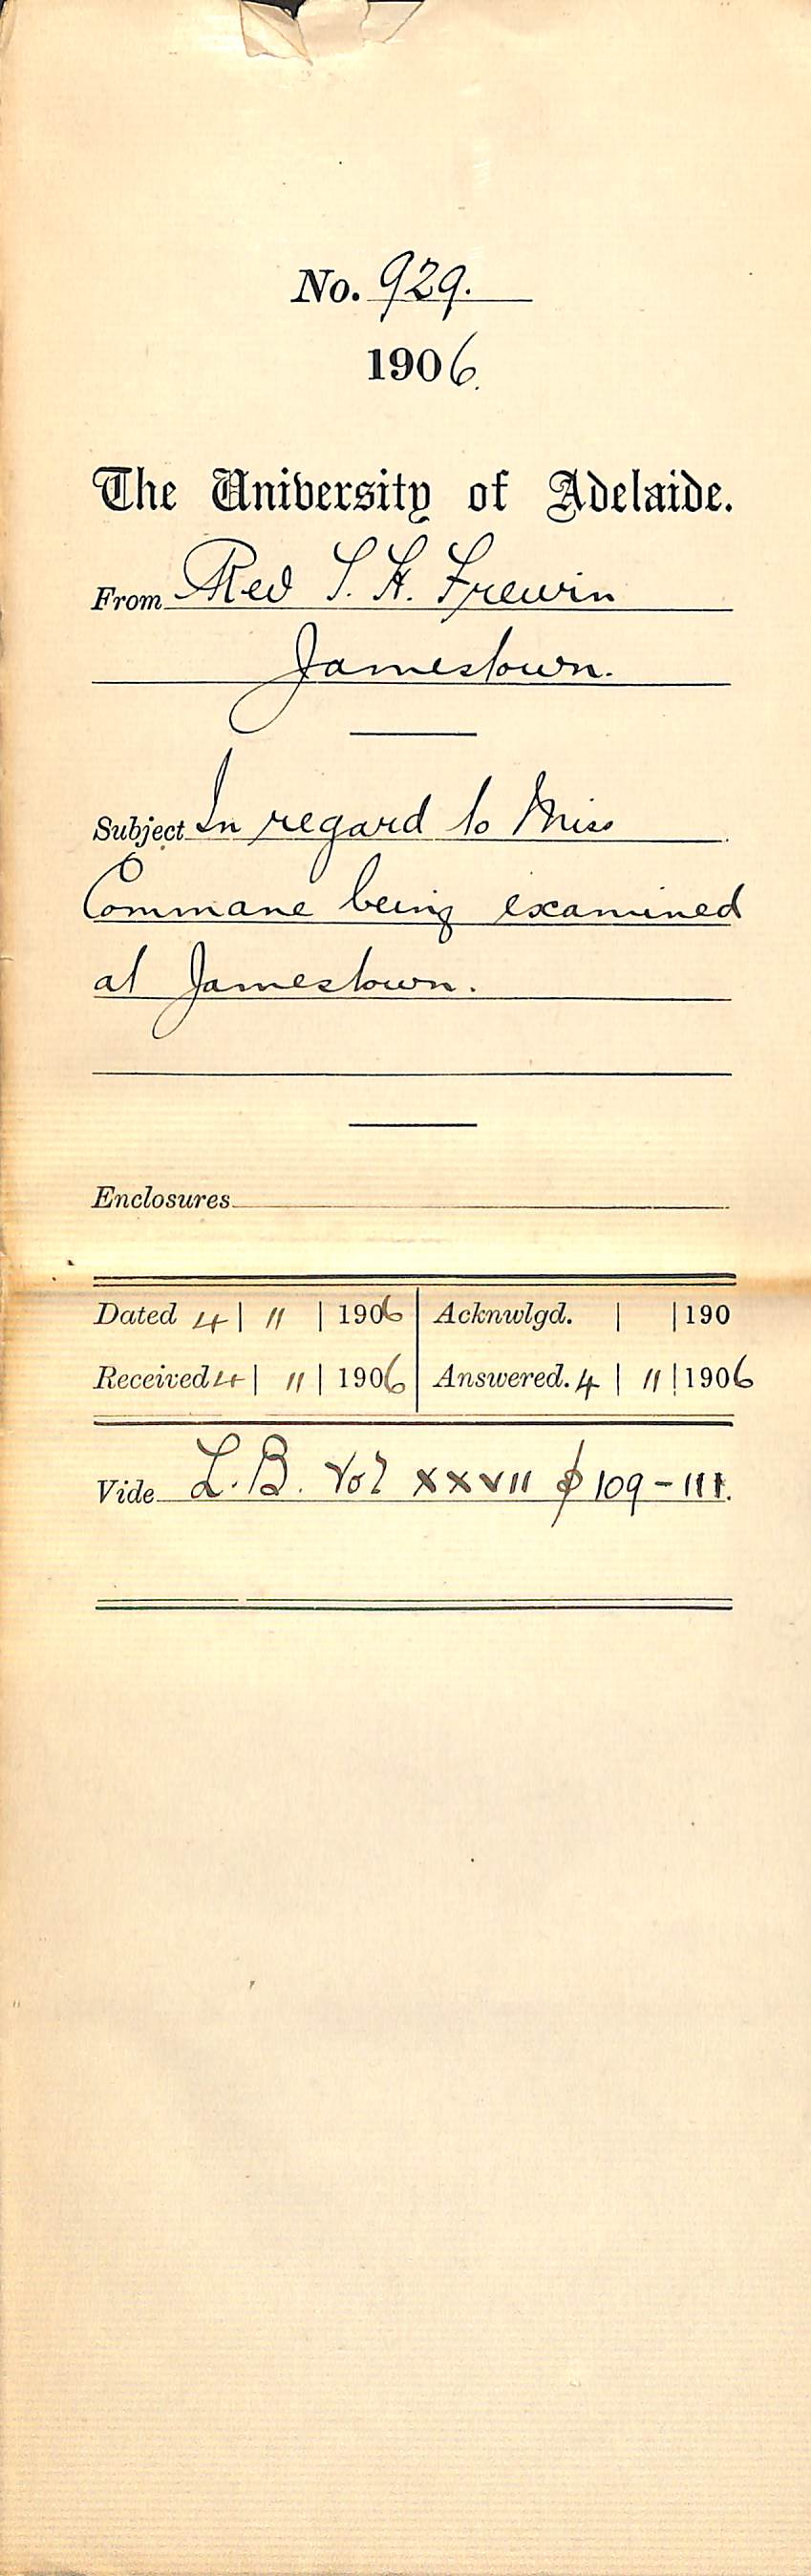 No. 929.
1906.
The University of Adelaide.
From Rev S. H. Frewin
Jamestown.
Subject In regard to Miss
Commane being examined
at Jamestown.
Enclosures
Dated 4 | 11 | 1906 | Acknwlgd. | | 190
Received 4 | 11 | 1906 | Answered. 4 | 11 | 1906
Vide L.B. Vol XXVII p 109-111.